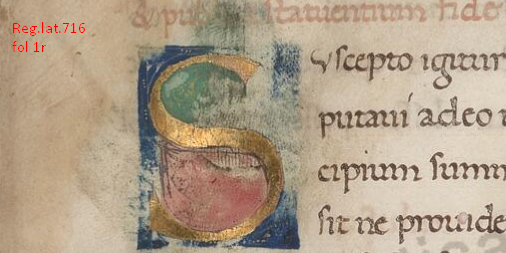 Reg.lat.716
fol 1r
statuentium fide
Suscepto igitur
putaui adeo
cipium summ
sit ne prouide